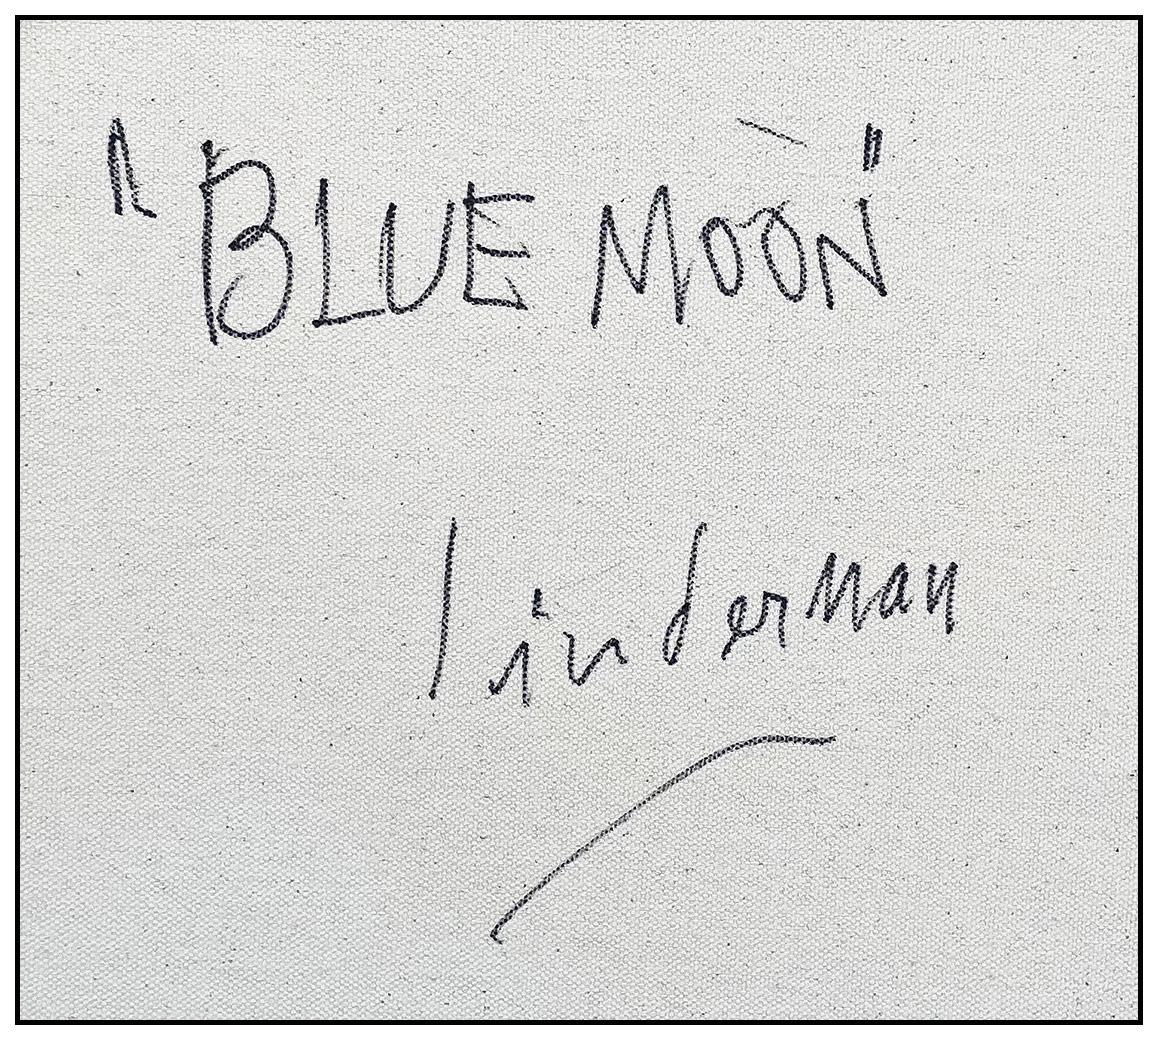 "BLUE MOON"
linderman